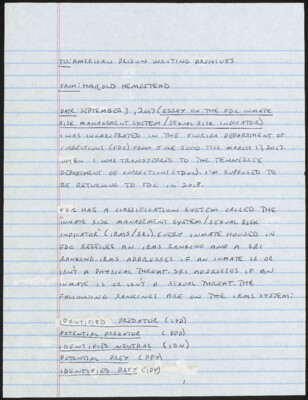 TO: AMERICAN PRISON WRITING ARCHIVES
FROM: HAROLD HEMPSTEAD
DATE: SEPTEMBER 3, 2017 (ESSAY ON THE FDC INMATE
RISK MANAGEMENT SYSTEM / SEXUAL RISK INDICATOR)
I WAS INCARCERATED IN THE FLORIDA DEPARTMENT OF
CORRECTIONS (FDC) FROM JUNE 2000 TILL MARCH 17, 2017
WHEN I WAS TRANSFERRED TO THE TENNESSEE
DEPARTMENT OF CORRECTIONS (TDOC). I'M SUPPOSED TO
BE RETURNING TO FDC IN 2018.
FDC HAS A CLASSIFICATION SYSTEM CALLED THE
INMATE RISK MANAGEMENT SYSTEM / SEXUAL RISK
INDICATOR" (IRMS/SRI). EVERY INMATE HOUSED IN
FDC RECEIVES AN IRMS RANKING AND A SRI
RANKING. IRMS ADDRESSES IF AN INMATE IS OR
ISN'T A PHYSICAL THREAT. SRI ADDRESSES IF AN
INMATE IS OR ISN'T A SEXUAL THREAT. THE
FOLLOWING RANKINGS ARE ON THE IRMS SYSTEM:
IDENTIFIED PREDATOR (IPD)
POTENTIAL PREDATOR (PPD)
IDENTIFIED NEUTRAL (IDN)
POTENTIAL PREY (PPY)
IDENTIFIED PREY (IPY)